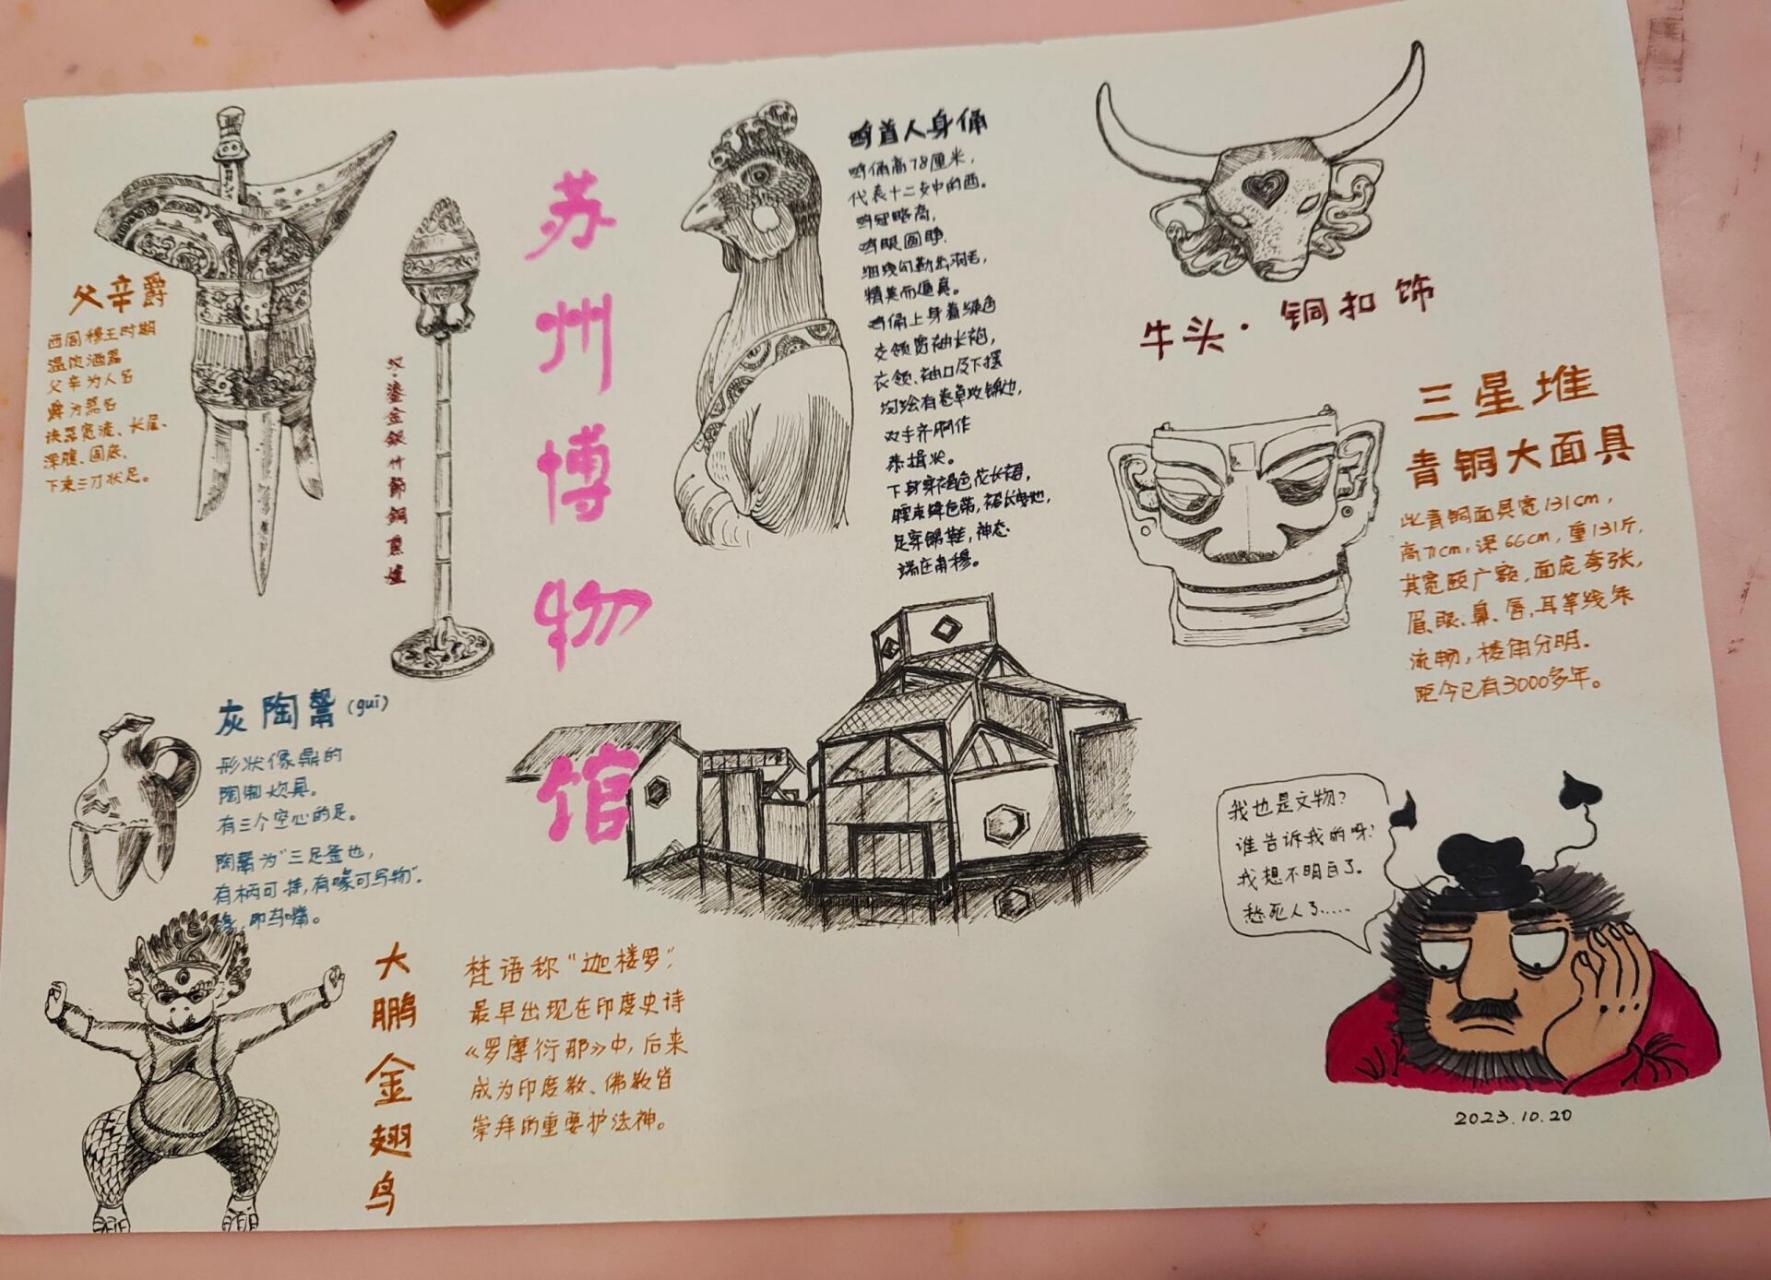 父辛爵
西周穆王时期
温饮酒器
父辛为人名
爵为器名
该器宽流、长尾、
深腹、圆底、
下束三刀状足。
汉·鎏金银竹節铜熏爐
苏州博物馆
鸡首人身俑
鸡俑高78厘米，
代表十二支中的酉。
鸡冠略高，
鸡眼圆睁，
细线勾勒出羽毛，
精美而逼真。
鸡俑上身着绿色
交领宽袖长袍，
衣领、袖口及下摆
均绘有卷草纹锦边，
双手齐胸作
恭揖状。
下身穿褐色花长裙，
腰束绛色带，裙长曳地，
足穿锦鞋，神态
端庄肃穆。
牛头·铜扣饰
三星堆
青铜大面具
此青铜面具宽131cm，
高71cm，深66cm，重131斤，
其宽颐广额，面庞夸张，
眉、眼、鼻、唇、耳等线条
流畅，棱角分明．
距今已有3000多年。
灰陶鬶(gui)
形状像鼎的
陶制炊具。
有三个空心的足。
陶鬶为“三足釜也，
有柄可持，有喙可写物”．
喙，即鸟嘴。
大鹏金翅鸟
梵语称“迦楼罗”，
最早出现在印度史诗
《罗摩衍那》中，后来
成为印度教、佛教皆
崇拜的重要护法神。
我也是文物？
谁告诉我的呀？
我想不明白了。
愁死人了……
2023.10.20